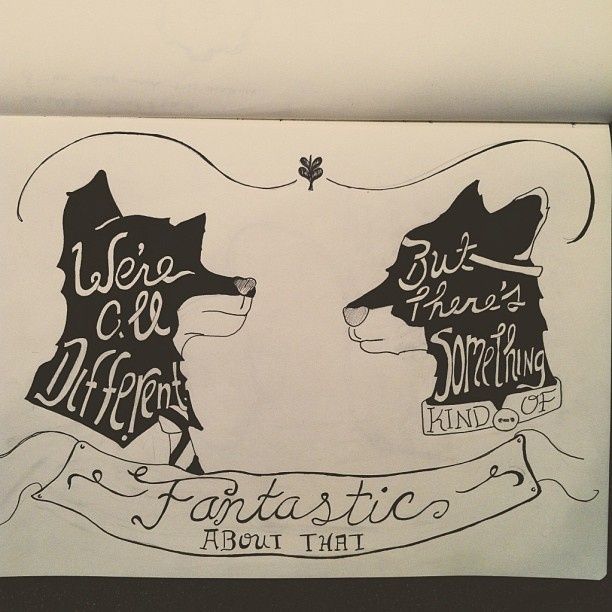 We're
All
Different
But
There's
Something
KIND OF
Fantastic
ABOUT THAT